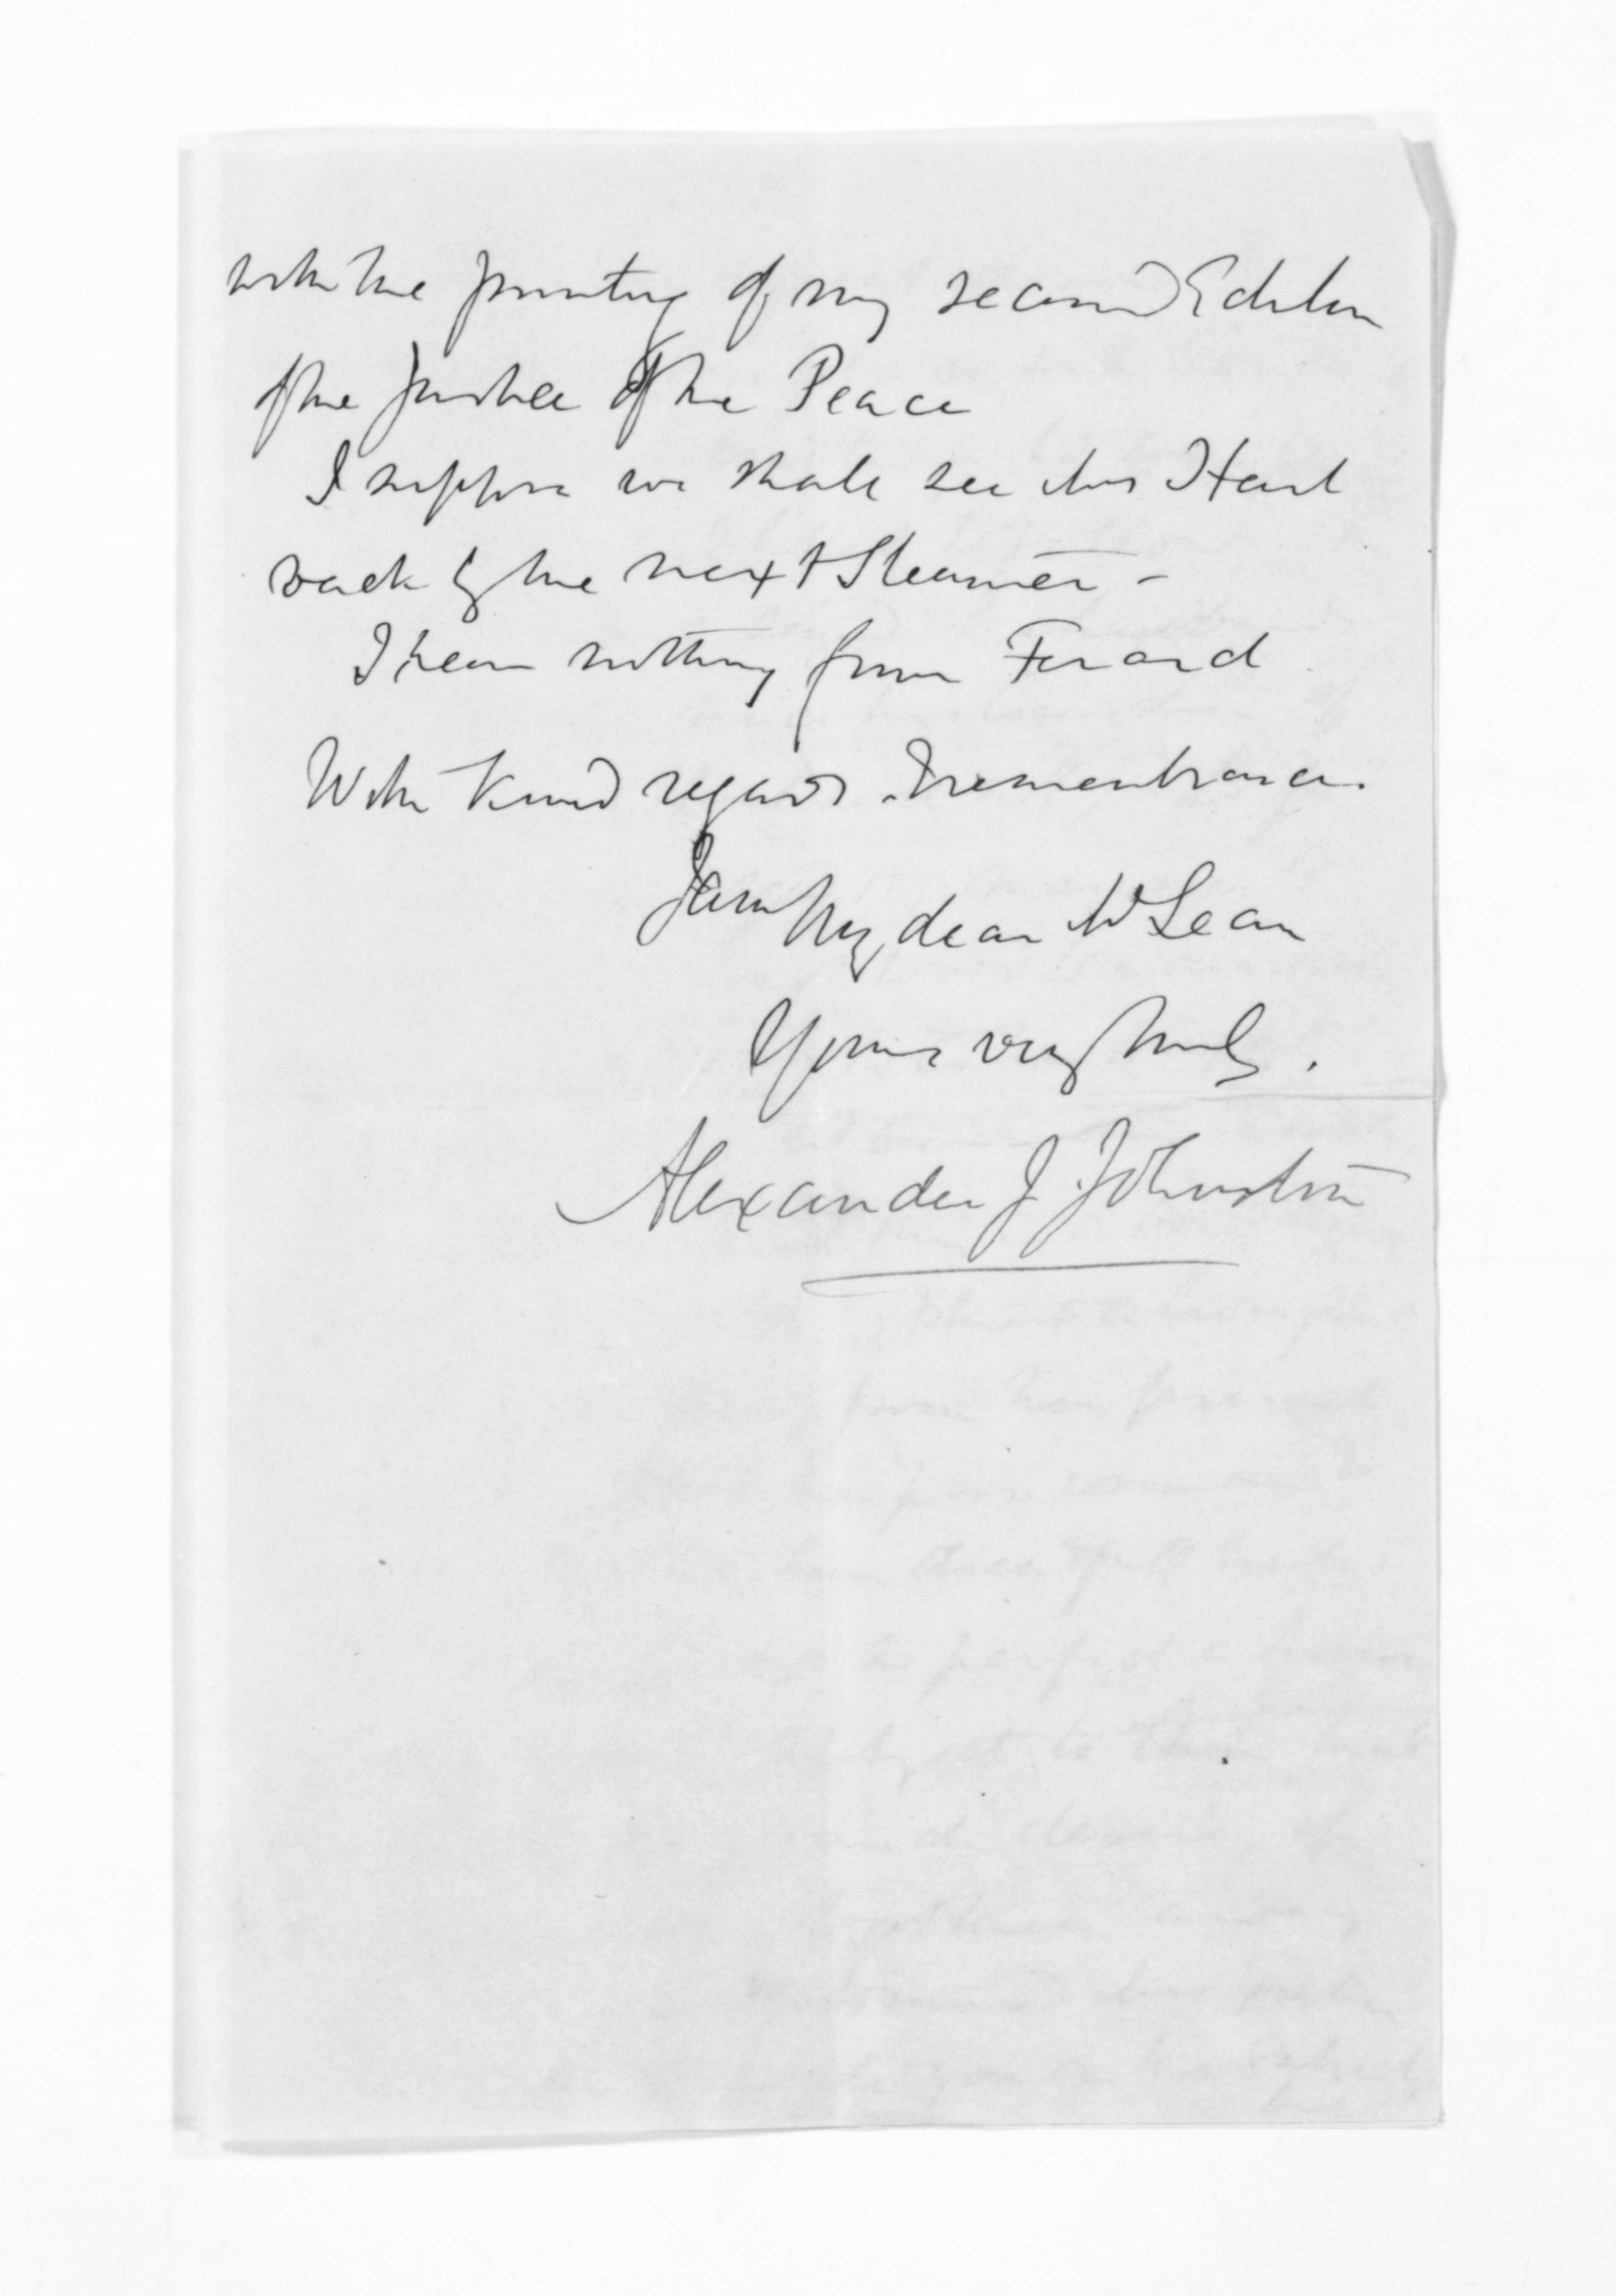 with the printing of my second Edition
of the Justice of the Peace
I suppose we shall see this
back by the next Steamer -
I hear nothing from
With kind regards & remembrances.
I am My dear McLean
Yours very truly.
Alexander J. Johnston